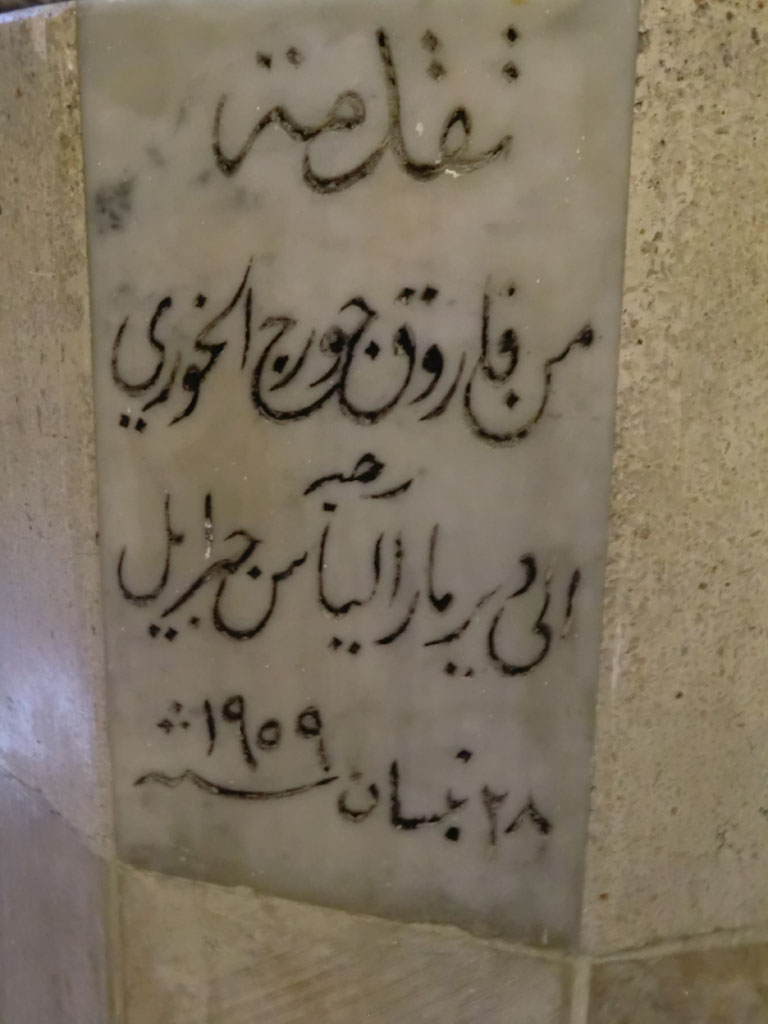 تقدمة
من فاروق جورج الخوري
رحبه
الى دير مار الياس جبرايل
٢٨ نيسان سنه ١٩٥٩